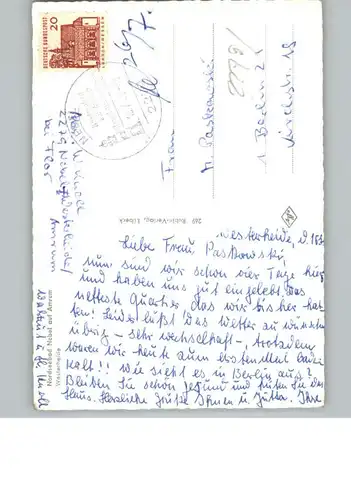 Westerheide, d. 18.
Liebe Frau Paskowski,
nun sind wir schon vier Tage hier
und haben uns gut eingelebt. Das
netteste Quartier das wir bisher hat-
ten! Leider läßt das Wetter zu wünschen
übrig - sehr wechselhaft -, trotzdem
waren wir heute zum ersten Mal baden
kalt!! Wie sieht es in Berlin aus?
Bleiben Sie schön gesund und hüten Sie das
Haus. Herzliche Grüße Ihnen u. Jutta. Ihre
Nordseebad Nebel auf Amrum
Westerheide
249 Rubin-Verlag, Lübeck
2279 Nebel/Westerheide
bei Flor
Amrum
Frau
M. Paskowski
1 Berlin 21
Kirchstr. 19
DEUTSCHE BUNDESPOST
20